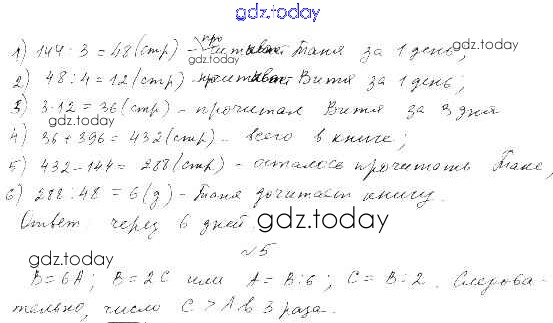 gdz.today
1) 144 : 3 = 48 (стр) - прочитывает Таня за 1 день;
gdz.today
gdz.today
2) 48 : 4 = 12 (стр) - прочитывает Витя за 1 день;
3) 3·12 = 36 (стр) - прочитал Витя за 3 дня
gdz.today
4) 36 + 396 = 432 (стр) - всего в книге;
5) 432 - 144 = 288 (стр) - осталось прочитать Тане;
6) 288 : 48 = 6 (д) - Таня дочитает книгу.
Ответ: через 6 дней
gdz.today
№5
gdz.today
B = 6A; B = 2C или A = B:6; C = B:2. Следова-
тельно, число C > A в 3 раза.
gdz.today